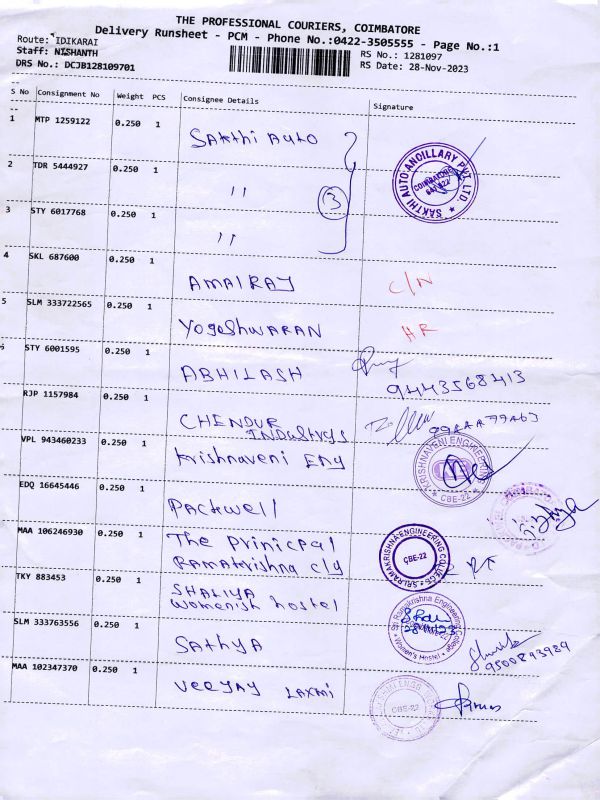 THE PROFESSIONAL COURIERS, COIMBATORE
Delivery Runsheet - PCM - Phone No.:0422-3505555 - Page No.:1
Route: IDIKARAI
Staff: NISHANTH RS No.: 1281097
DRS No.: DCJB128109701 RS Date: 28-Nov-2023
S No Consignment No Weight PCS Consignee Details Signature
1 MTP 1259122 0.250 1 Sakthi Auto
2 TDR 5444927 0.250 1 〃 3
SAKTHI AUTO ANCILLARY PVT. LTD. COIMBATORE
3 STY 6017768 0.250 1 〃
4 SKL 687600 0.250 1 AMALRAJ C/N
5 SLM 333722565 0.250 1 Yogeshwaran HR
STY 6001595 0.250 1 ABHILASH 9443568413
RJP 1157984 0.250 1 CHENDUR
Industrys
VPL 943460233 0.250 1 Krishnaveni Eng
KRISHNAVENI ENGINEERING CBE-22
EDQ 16645446 0.250 1 Packwell
MAA 106246930 0.250 1 The Prinicpal
Ramakrishna clg
SRI RAMAKRISHNA ENGINEERING COLLEGE CBE-22
TKY 883453 0.250 1 SHALIYA
Womenish hostel
Sri Ramakrishna Engineering College Women's Hostel
SLM 333763556 0.250 1 SATHYA 9500893989
MAA 102347370 0.250 1 Veejay Laxmi
CBE-22